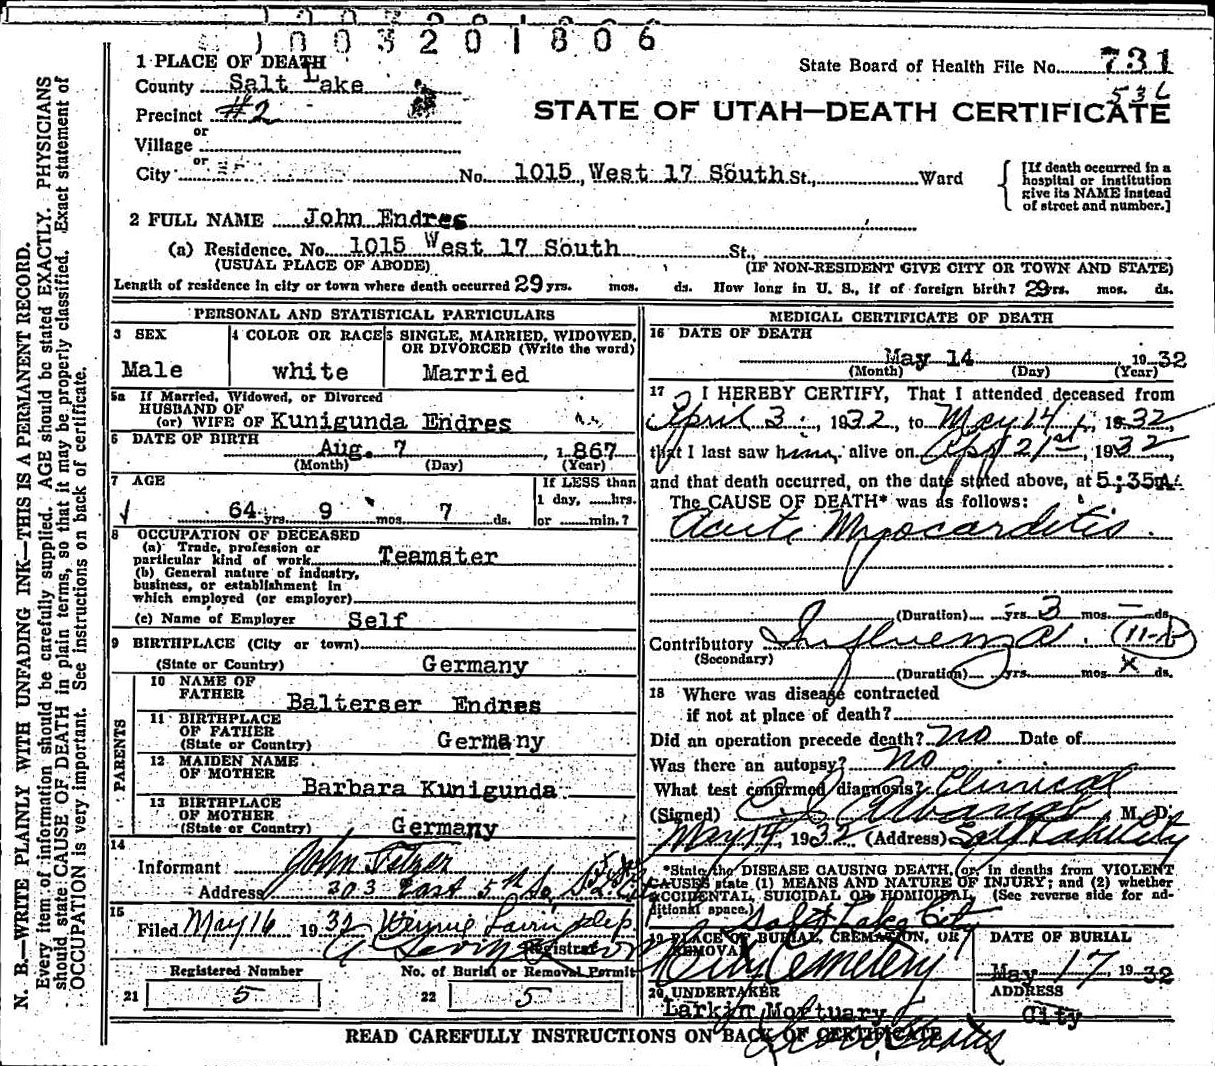 1003201806
1 PLACE OF DEATH
County Salt Lake
Precinct #2
or
Village
or
City No. 1015 West 17 South St., Ward
State Board of Health File No. 731
536
STATE OF UTAH—DEATH CERTIFICATE
[If death occurred in a
hospital or institution
give its NAME instead
of street and number.]
2 FULL NAME John Endres
(a) Residence. No. 1015 West 17 South St.,
(USUAL PLACE OF ABODE) (IF NON-RESIDENT GIVE CITY OR TOWN AND STATE)
Length of residence in city or town where death occurred 29 yrs. mos. ds. How long in U. S., if of foreign birth? 29 yrs. mos. ds.
PERSONAL AND STATISTICAL PARTICULARS
3 SEX 4 COLOR OR RACE 5 SINGLE, MARRIED, WIDOWED,
OR DIVORCED (Write the word)
Male white Married
5a If Married, Widowed, or Divorced
HUSBAND OF
(or) WIFE OF Kunigunda Endres
6 DATE OF BIRTH
Aug. 7, 1867
(Month) (Day) (Year)
7 AGE If LESS than
1 day, ......hrs.
64 yrs. 9 mos. 7 ds. or ......min.?
8 OCCUPATION OF DECEASED
(a) Trade, profession or
particular kind of work Teamster
(b) General nature of industry,
business, or establishment in
which employed (or employer)
(c) Name of Employer Self
9 BIRTHPLACE (City or town)
(State or Country) Germany
PARENTS
10 NAME OF
FATHER Balterser Endres
11 BIRTHPLACE
OF FATHER
(State or Country) Germany
12 MAIDEN NAME
OF MOTHER
Barbara Kunigunda
13 BIRTHPLACE
OF MOTHER
(State or Country) Germany
14
Informant John
Address 303 East 5th So,
15
Filed May 16 1932 dep
Registrar
Registered Number No. of Burial or Removal Permit
21 5 22 5
MEDICAL CERTIFICATE OF DEATH
16 DATE OF DEATH
May 14 1932
(Month) (Day) (Year)
17 I HEREBY CERTIFY, That I attended deceased from
April 3, 1932, to May 14, 1932
that I last saw him alive on Apr 21st, 1932,
and that death occurred, on the date stated above, at 5:35A.
The CAUSE OF DEATH* was as follows:
Acute Myocarditis.
(Duration) — yrs. 3 mos. — ds.
Contributory Influenza.
(Secondary)
(Duration) yrs. mos. X ds.
18 Where was disease contracted
if not at place of death?
Did an operation precede death? no Date of
Was there an autopsy? no
What test confirmed diagnosis? Clinical
(Signed) M. D.
May 14, 1932 (Address) Salt Lake City
*State the DISEASE CAUSING DEATH, or, in deaths from VIOLENT
CAUSES state (1) MEANS AND NATURE OF INJURY; and (2) whether
ACCIDENTAL, SUICIDAL OR HOMICIDAL. (See reverse side for ad-
ditional space.)
Salt Lake City
19 PLACE OF BURIAL, CREMATION, OR
REMOVAL
City Cemetery
DATE OF BURIAL
May 17, 1932
20 UNDERTAKER
Larkin Mortuary
ADDRESS
City
READ CAREFULLY INSTRUCTIONS ON BACK OF CERTIFICATE
N. B.—WRITE PLAINLY WITH UNFADING INK—THIS IS A PERMANENT RECORD.
Every item of information should be carefully supplied. AGE should be stated EXACTLY. PHYSICIANS
should state CAUSE OF DEATH in plain terms, so that it may be properly classified. Exact statement of
OCCUPATION is very important. See instructions on back of certificate.